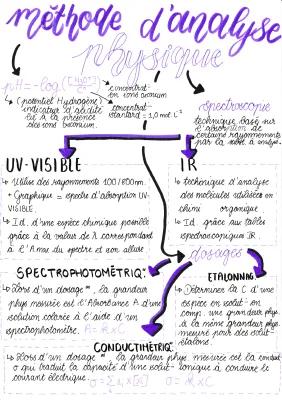 méthode d'analyse
physique
pH = -log ([H₃O⁺]/C°)
concentrat°
en ions oxonium
concentrat°
standard = 1,0 mol L⁻¹
(potentiel Hydrogène)
indicateur d'acidité
lié à la présence
des ions oxonium.
spectroscopie
technique basée sur
l'absorption de
certains rayonnements
par la note à analyse.
UV-VISIBLE
↳ Utilise des rayonnements 100/800nm.
↳ Graphique = spectre d'absorption UV-
VISIBLE.
↳ Id. d'une espèce chimique possible
grâce à la valeur de λ correspondant
à l'A max du spectre et son allure
IR
↳ technique d'analyse
des molécules utilisées en
chimi organique
↳ Id. grâce au tables
spectroscopiques IR.
dosages
SPECTROPHOTOMÉTRIQ:
↳ Hors d'un dosage, la grandeur
phys mesurée est l'Absorbance A d'une
solution colorée à l'aide d'un
spectrophotomètre. A = k x C
ETALONNAG:
↳ Déterminer la C d'une
espèce en solut° en
comp. une grandeur phys.
à la même grandeur phys.
mesurée pour des solut°
étalons.
CONDUCTIMÉTRIQ:
↳ Hors d'un dosage, la grandeur phys. mesurée est la conduct
σ qui traduit la capacité d'une solut° ionique à conduire le
courant électrique. σ = Σ λi x [Xi] σ = k x C